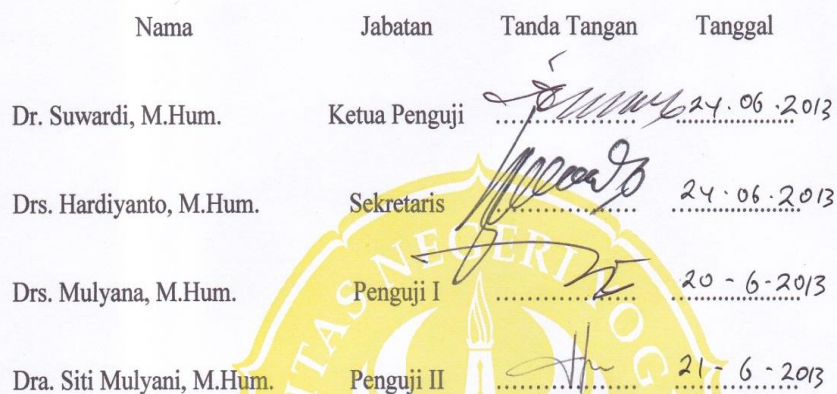 Nama Jabatan Tanda Tangan Tanggal
Dr. Suwardi, M.Hum. Ketua Penguji 24.06.2013
Drs. Hardiyanto, M.Hum. Sekretaris 24.06.2013
Drs. Mulyana, M.Hum. Penguji I 20-6-2013
Dra. Siti Mulyani, M.Hum. Penguji II 21-6-2013
ITAS NEGERI YOG